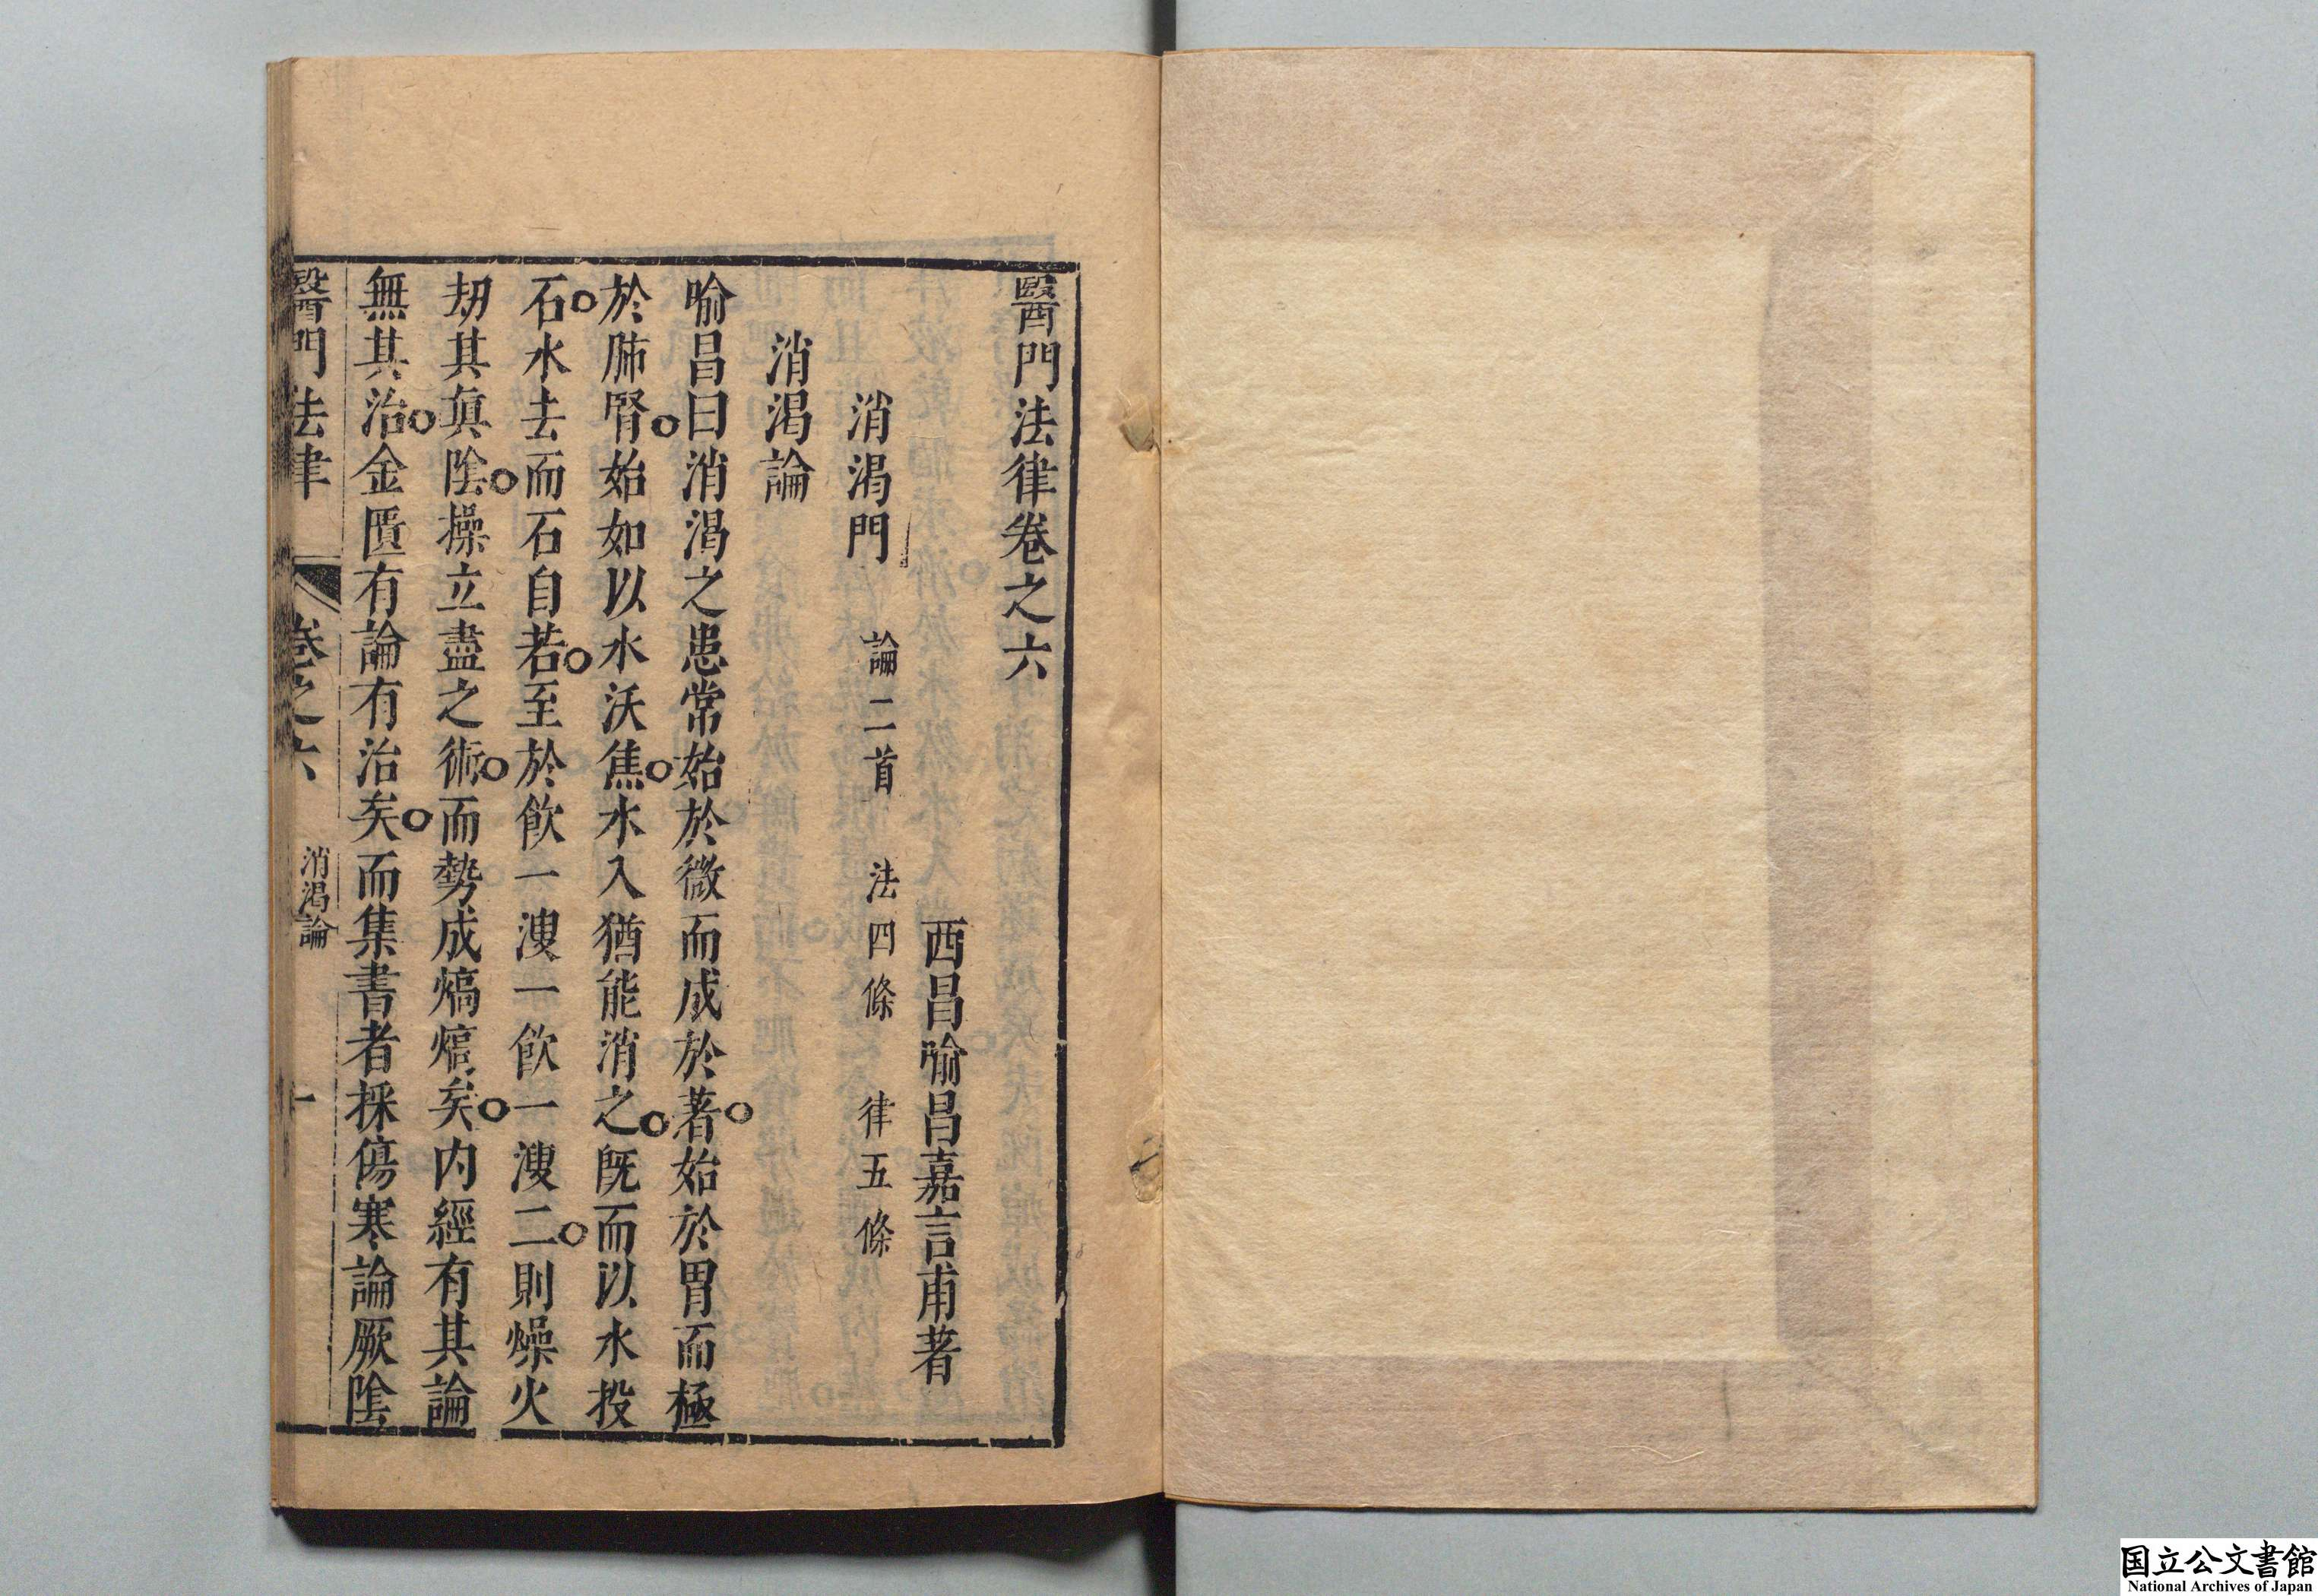 醫門法律卷之六
西昌喻昌嘉言甫著
消渴門 論二首 法四條 律五條
消渴論
喻昌曰消渴之患常始於微而成於著。始於胃而極
於肺腎。始如以水沃焦。水入猶能消之。既而以水投
石。水去而石自若。至於飲一溲一飲一溲二。則燥火
刼其眞陰。操立盡之術。而勢成熇熇矣。內經有其論
無其治。金匱有論有治矣。而集書者採傷寒論厥陰
醫門法律 卷之六 消渴論 一
国立公文書館
National Archives of Japan